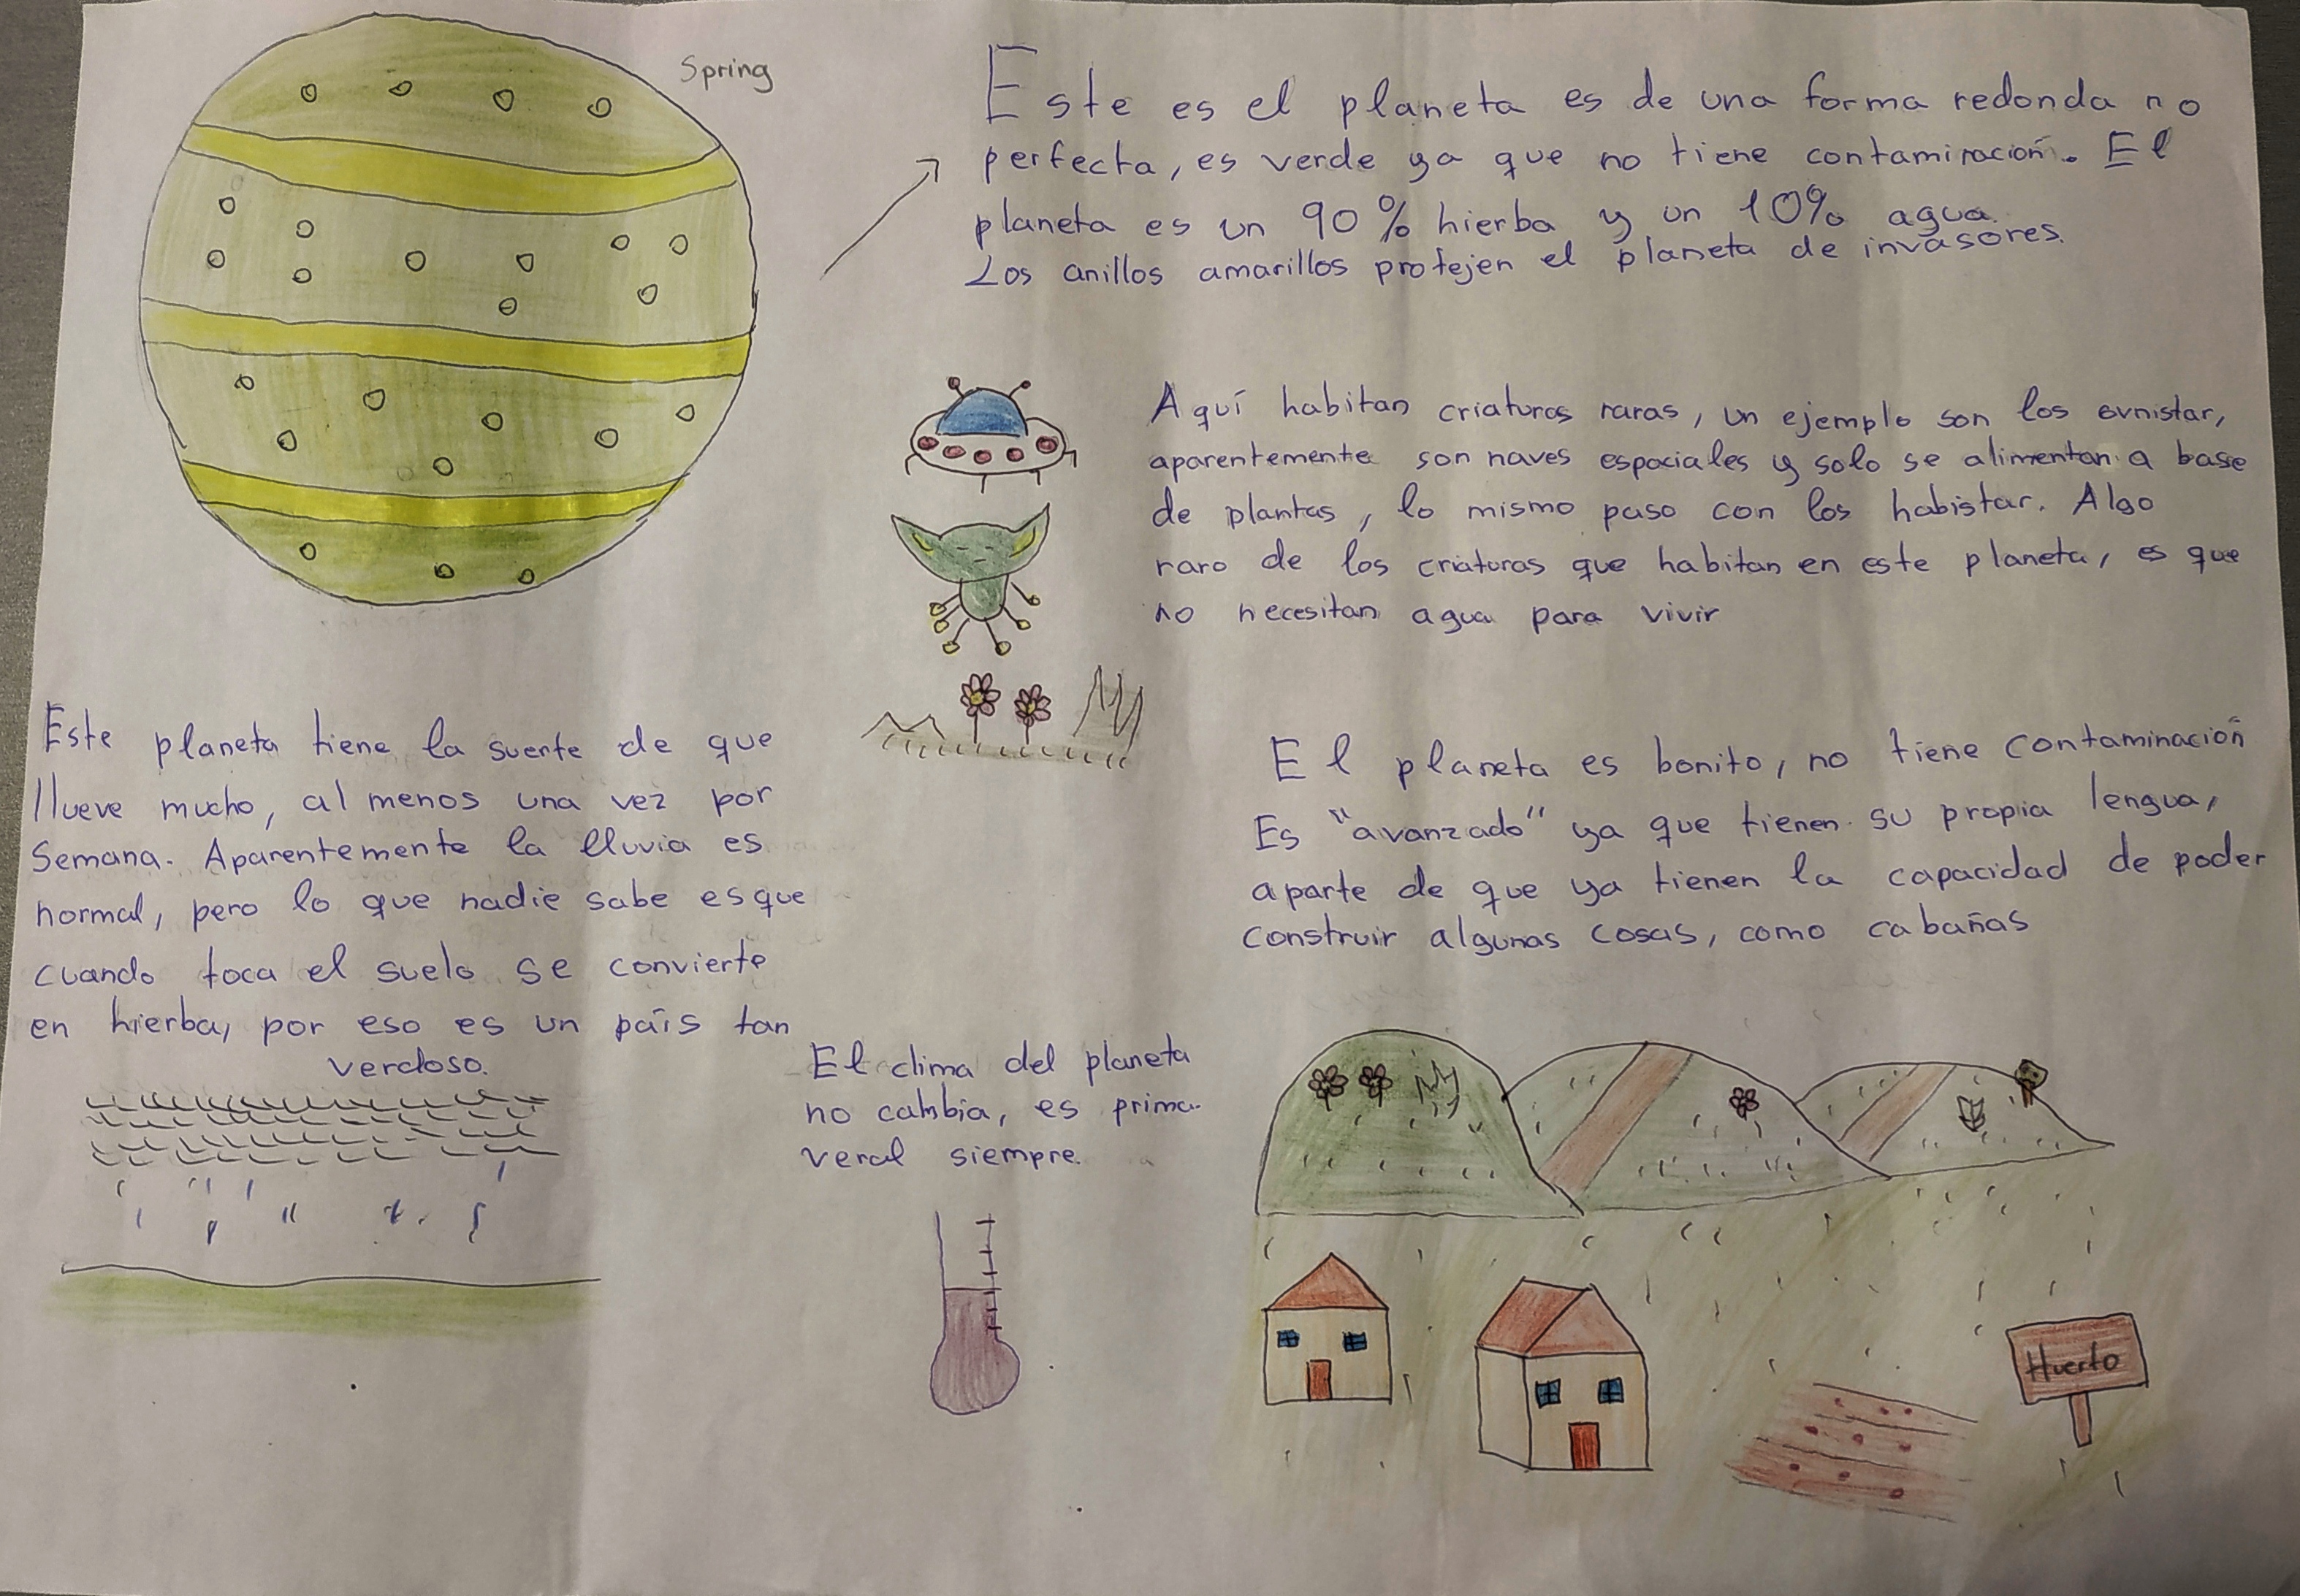 Spring
Este es el planeta es de una forma redonda no
perfecta, es verde ya que no tiene contaminación. El
planeta es un 90% hierba y un 10% agua.
Los anillos amarillos protejen el planeta de invasores.
Aquí habitan criaturas raras, un ejemplo son los ovnistar,
aparentemente son naves espaciales y solo se alimentan a base
de plantas, lo mismo pasa con los habistar. Algo
raro de las criaturas que habitan en este planeta, es que
no necesitan agua para vivir
Este planeta tiene la suerte de que
llueve mucho, al menos una vez por
Semana. Aparentemente la lluvia es
normal, pero lo que nadie sabe esque
cuando toca el suelo se convierte
en hierba, por eso es un país tan
verdoso.
El clima del planeta
no cambia, es prima-
veral siempre.
El planeta es bonito, no tiene contaminación
Es "avanzado" ya que tienen su propia lengua,
aparte de que ya tienen la capacidad de poder
construir algunas cosas, como cabañas
Huerto